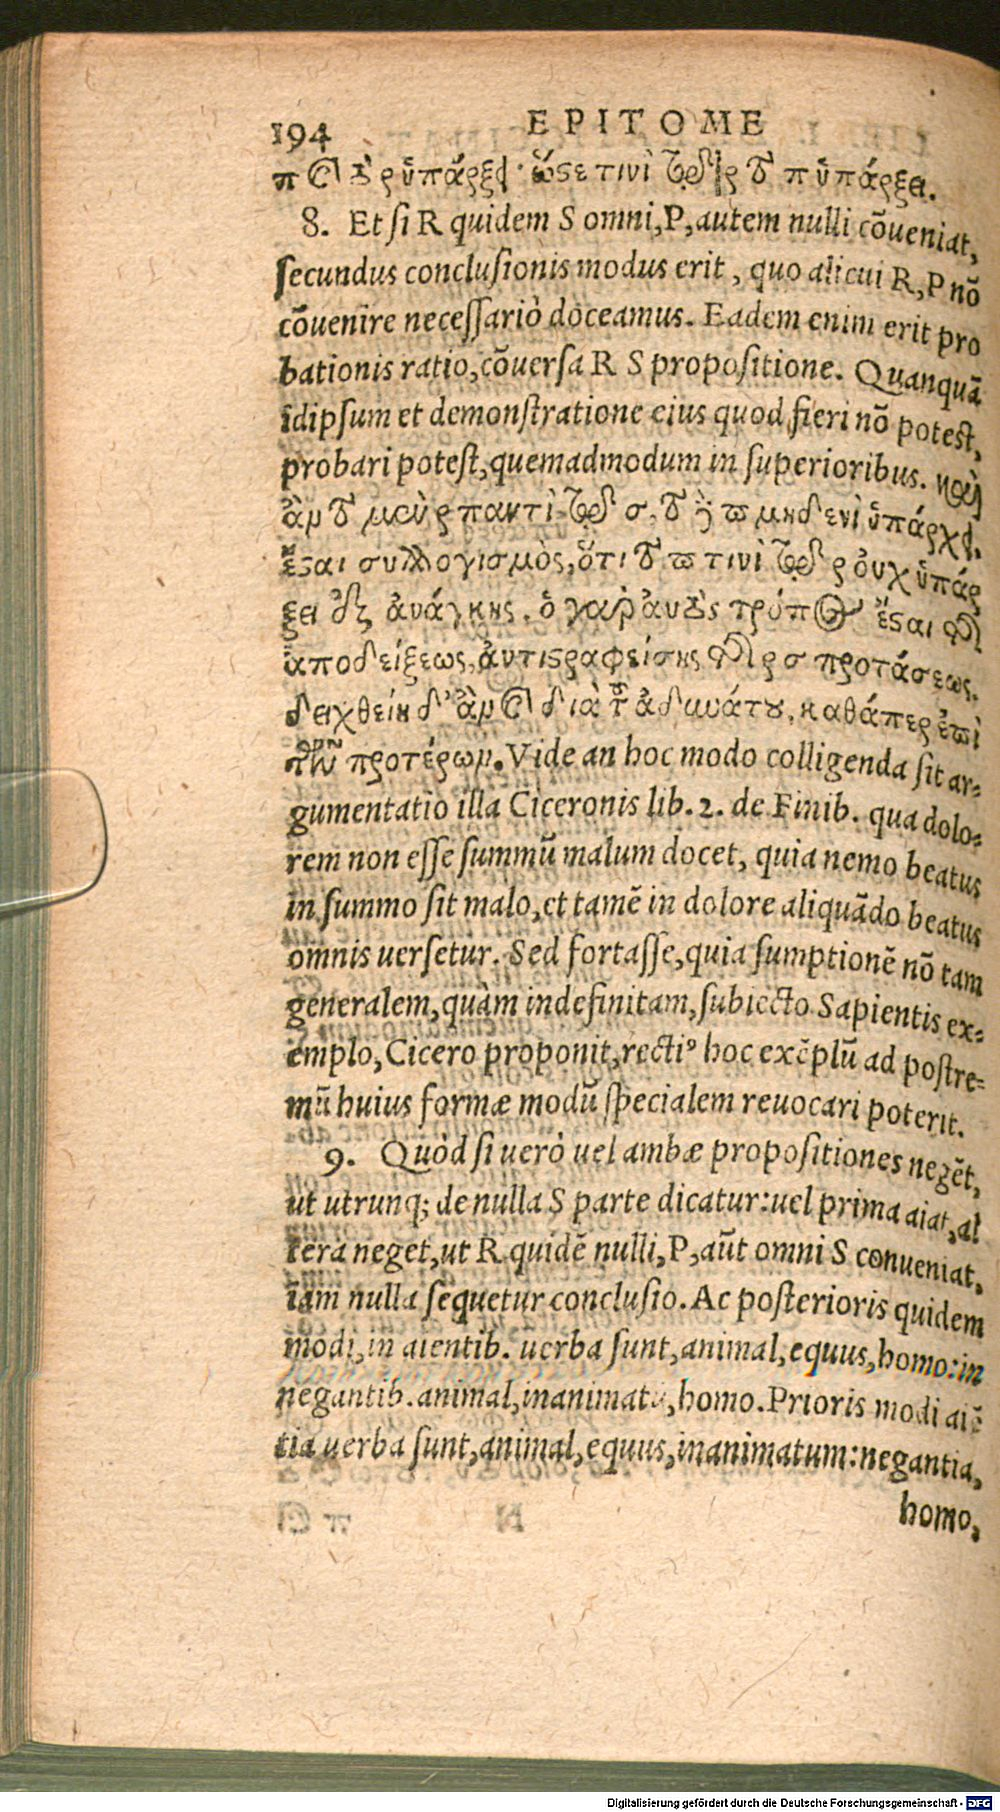 194 EPITOME
π καὶ τὸ ρ ὑπάρξει· ὥστε τινὶ τῶν ρ τὸ π ὑπάρξει.
8. Et si R quidem S omni, P, autem nulli cōueniat,
secundus conclusionis modus erit, quo alicui R, P nō
cōuenire necessariò doceamus. Eadem enim erit pro
bationis ratio, cōuersa R S propositione. Quanquā
idipsum et demonstratione eius quod fieri nō potest,
probari potest, quemadmodum in superioribus. καὶ
ἂν τὸ μὲν ρ παντὶ τῷ σ, τὸ ἢ π μηδενὶ ὑπάρχῃ,
ἔσται συλλογισμὸς, ὅτι τὸ π τινὶ τῷ ρ οὐχ ὑπάρ
ξει ἐξ ἀνάγκης. ὁ γὰρ αὐτὸς τρόπος ἔσται τῆς
ἀποδείξεως, ἀντιστραφείσης τῆς ρ σ προτάσεως.
δειχθείη δ' ἂν καὶ διὰ τοῦ ἀδυνάτου, καθάπερ ἐπὶ
τῶν προτέρων. Vide an hoc modo colligenda sit ar-
gumentatio illa Ciceronis lib. 2. de Finib. qua dolo-
rem non esse summū malum docet, quia nemo beatus
in summo sit malo, et tamē in dolore aliquādo beatus
omnis uersetur. Sed fortasse, quia sumptionē nō tam
generalem, quàm indefinitam, subiecto Sapientis ex-
emplo, Cicero proponit, recti⁹ hoc exēplū ad postre-
mū huius formæ modū specialem reuocari poterit.
9. Quòd si uerò uel ambæ propositiones negēt,
ut utrunq; de nulla S parte dicatur: uel prima aiat, al
tera neget, ut R quidē nulli, P, aūt omni S conueniat,
iam nulla sequetur conclusio. Ac posterioris quidem
modi, in aientib. uerba sunt, animal, equus, homo: in
negantib. animal, inanimatū, homo. Prioris modi aiē
tia uerba sunt, animal, equus, inanimatum: negantia,
homo,
Digitalisierung gefördert durch die Deutsche Forschungsgemeinschaft - DFG